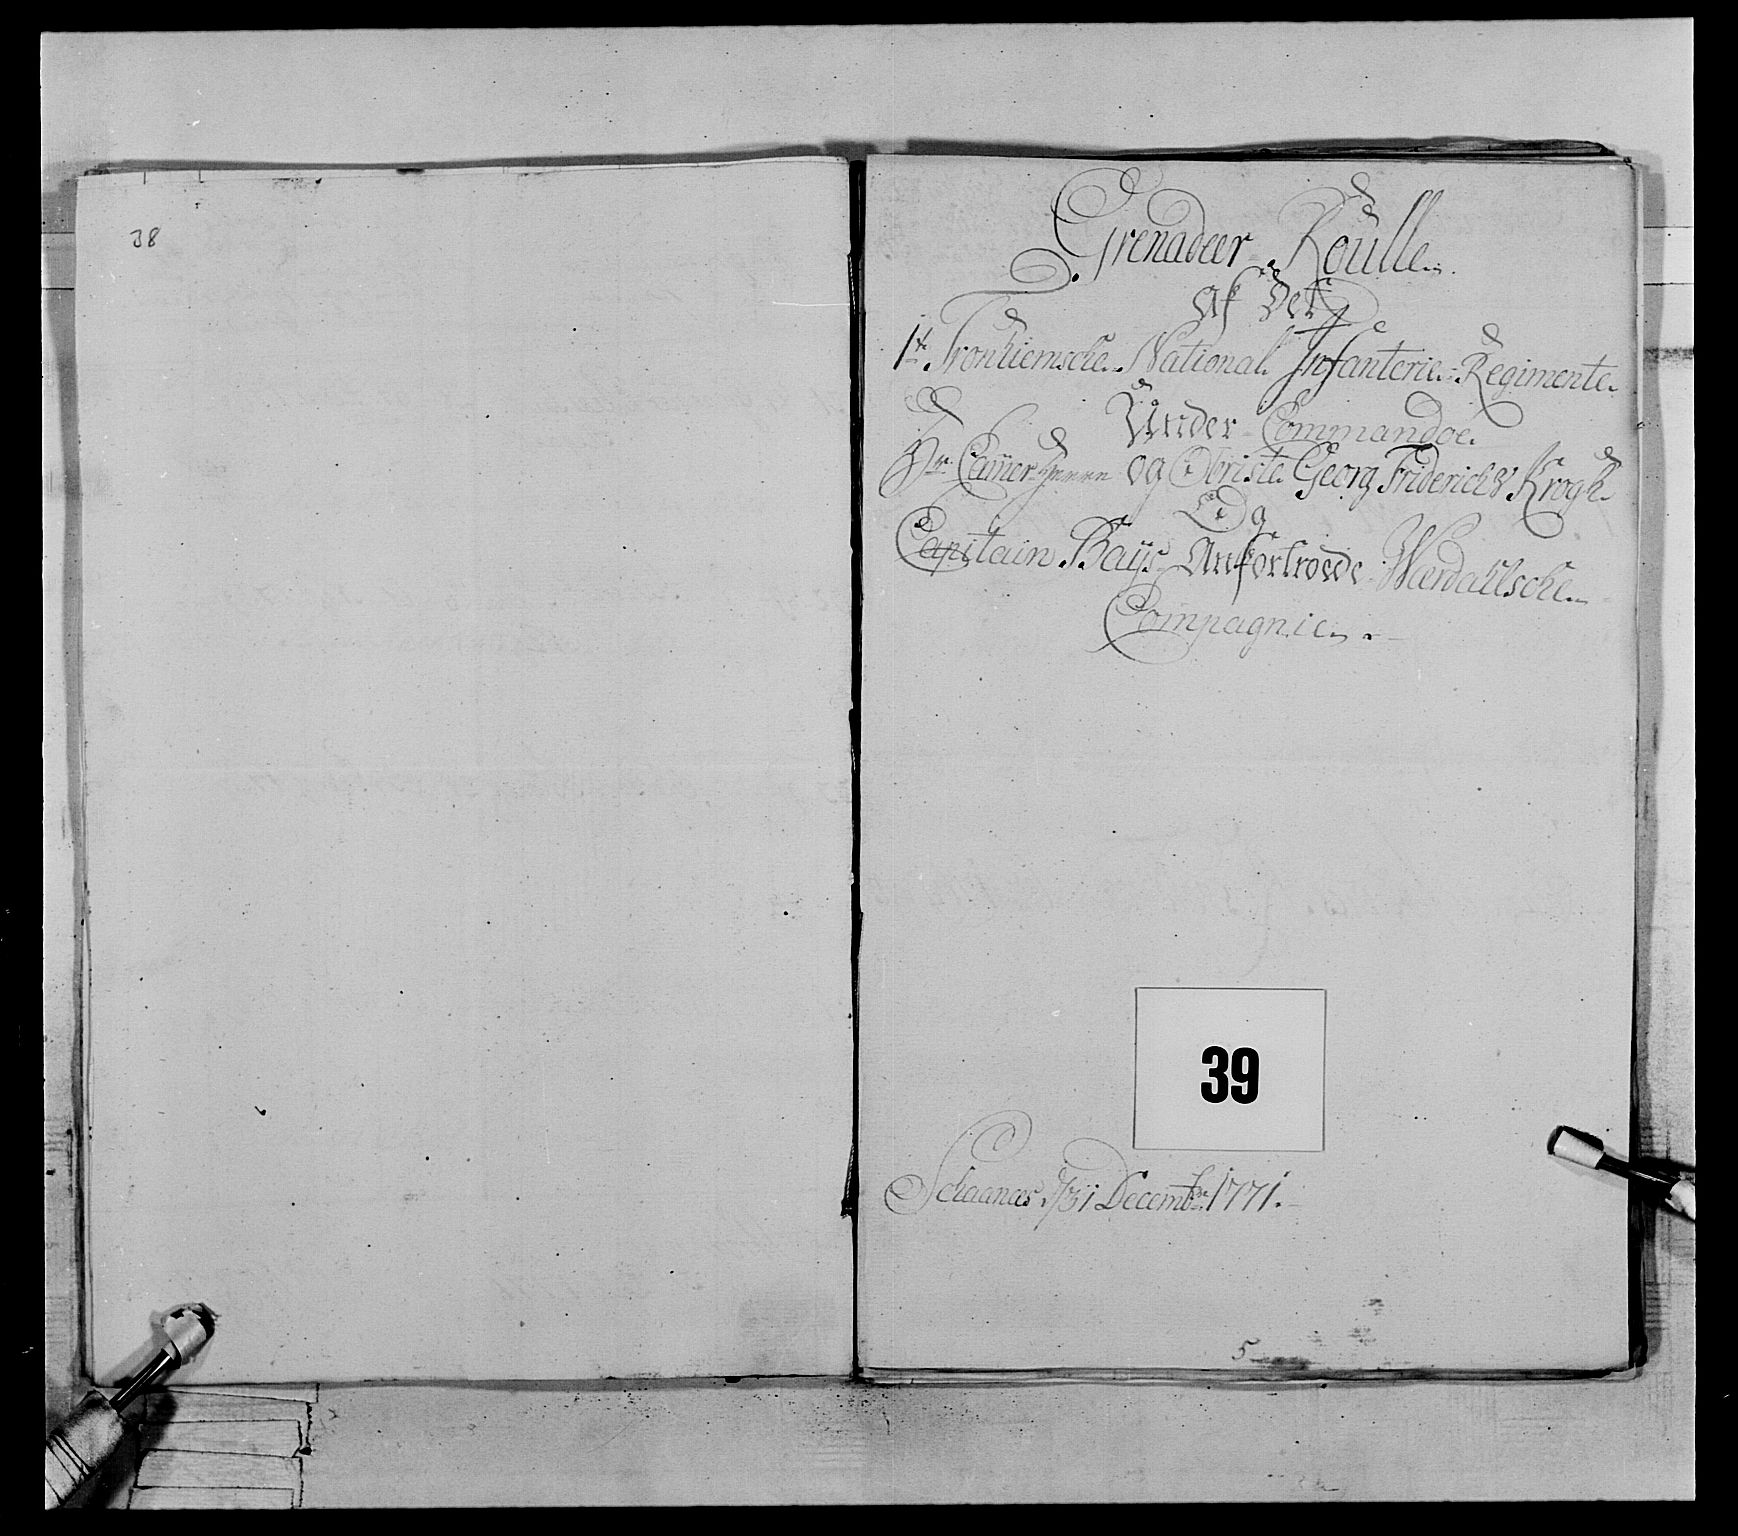 38
Grenadeer Roulle
Af Det
1te Tronhiemsche National Infanterie Regimente
Under Commandoe
Hr. Camer Herre og Obriste Georg Friderich v Krogh
Og
Capitain Bays Anfortroede Wærdahlsche
Compagnie
39
Schaanes d/31 Decembr 1771.
5